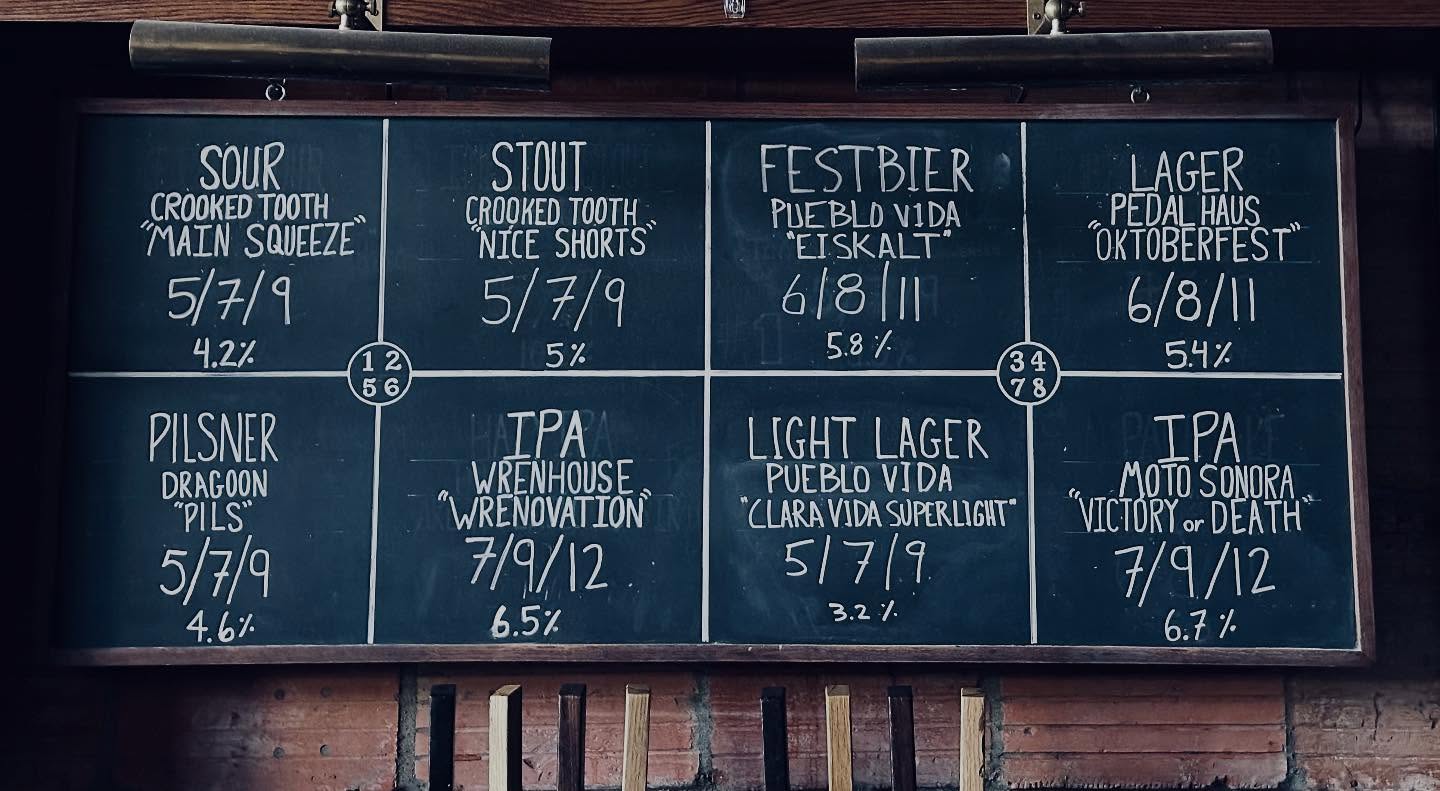 SOUR
CROOKED TOOTH
"MAIN SQUEEZE"
5/7/9
4.2%
STOUT
CROOKED TOOTH
"NICE SHORTS"
5/7/9
5%
FESTBIER
PUEBLO VIDA
"EISKALT"
6/8/11
5.8%
LAGER
PEDAL HAUS
"OKTOBERFEST"
6/8/11
5.4%
1 2
5 6
3 4
7 8
PILSNER
DRAGOON
"PILS"
5/7/9
4.6%
IPA
WRENHOUSE
"WRENOVATION"
7/9/12
6.5%
LIGHT LAGER
PUEBLO VIDA
"CLARA VIDA SUPERLIGHT"
5/7/9
3.2%
IPA
MOTO SONORA
"VICTORY or DEATH"
7/9/12
6.7%